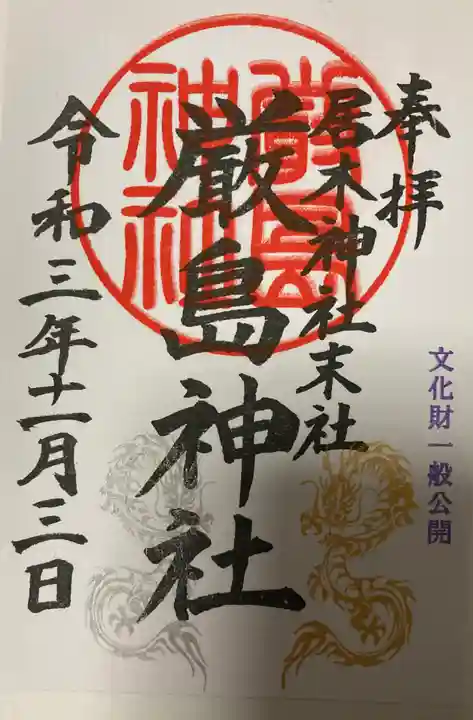 奉拝
居木神社末社
厳島神社
令和三年十一月三日
文化財一般公開
嚴島神社